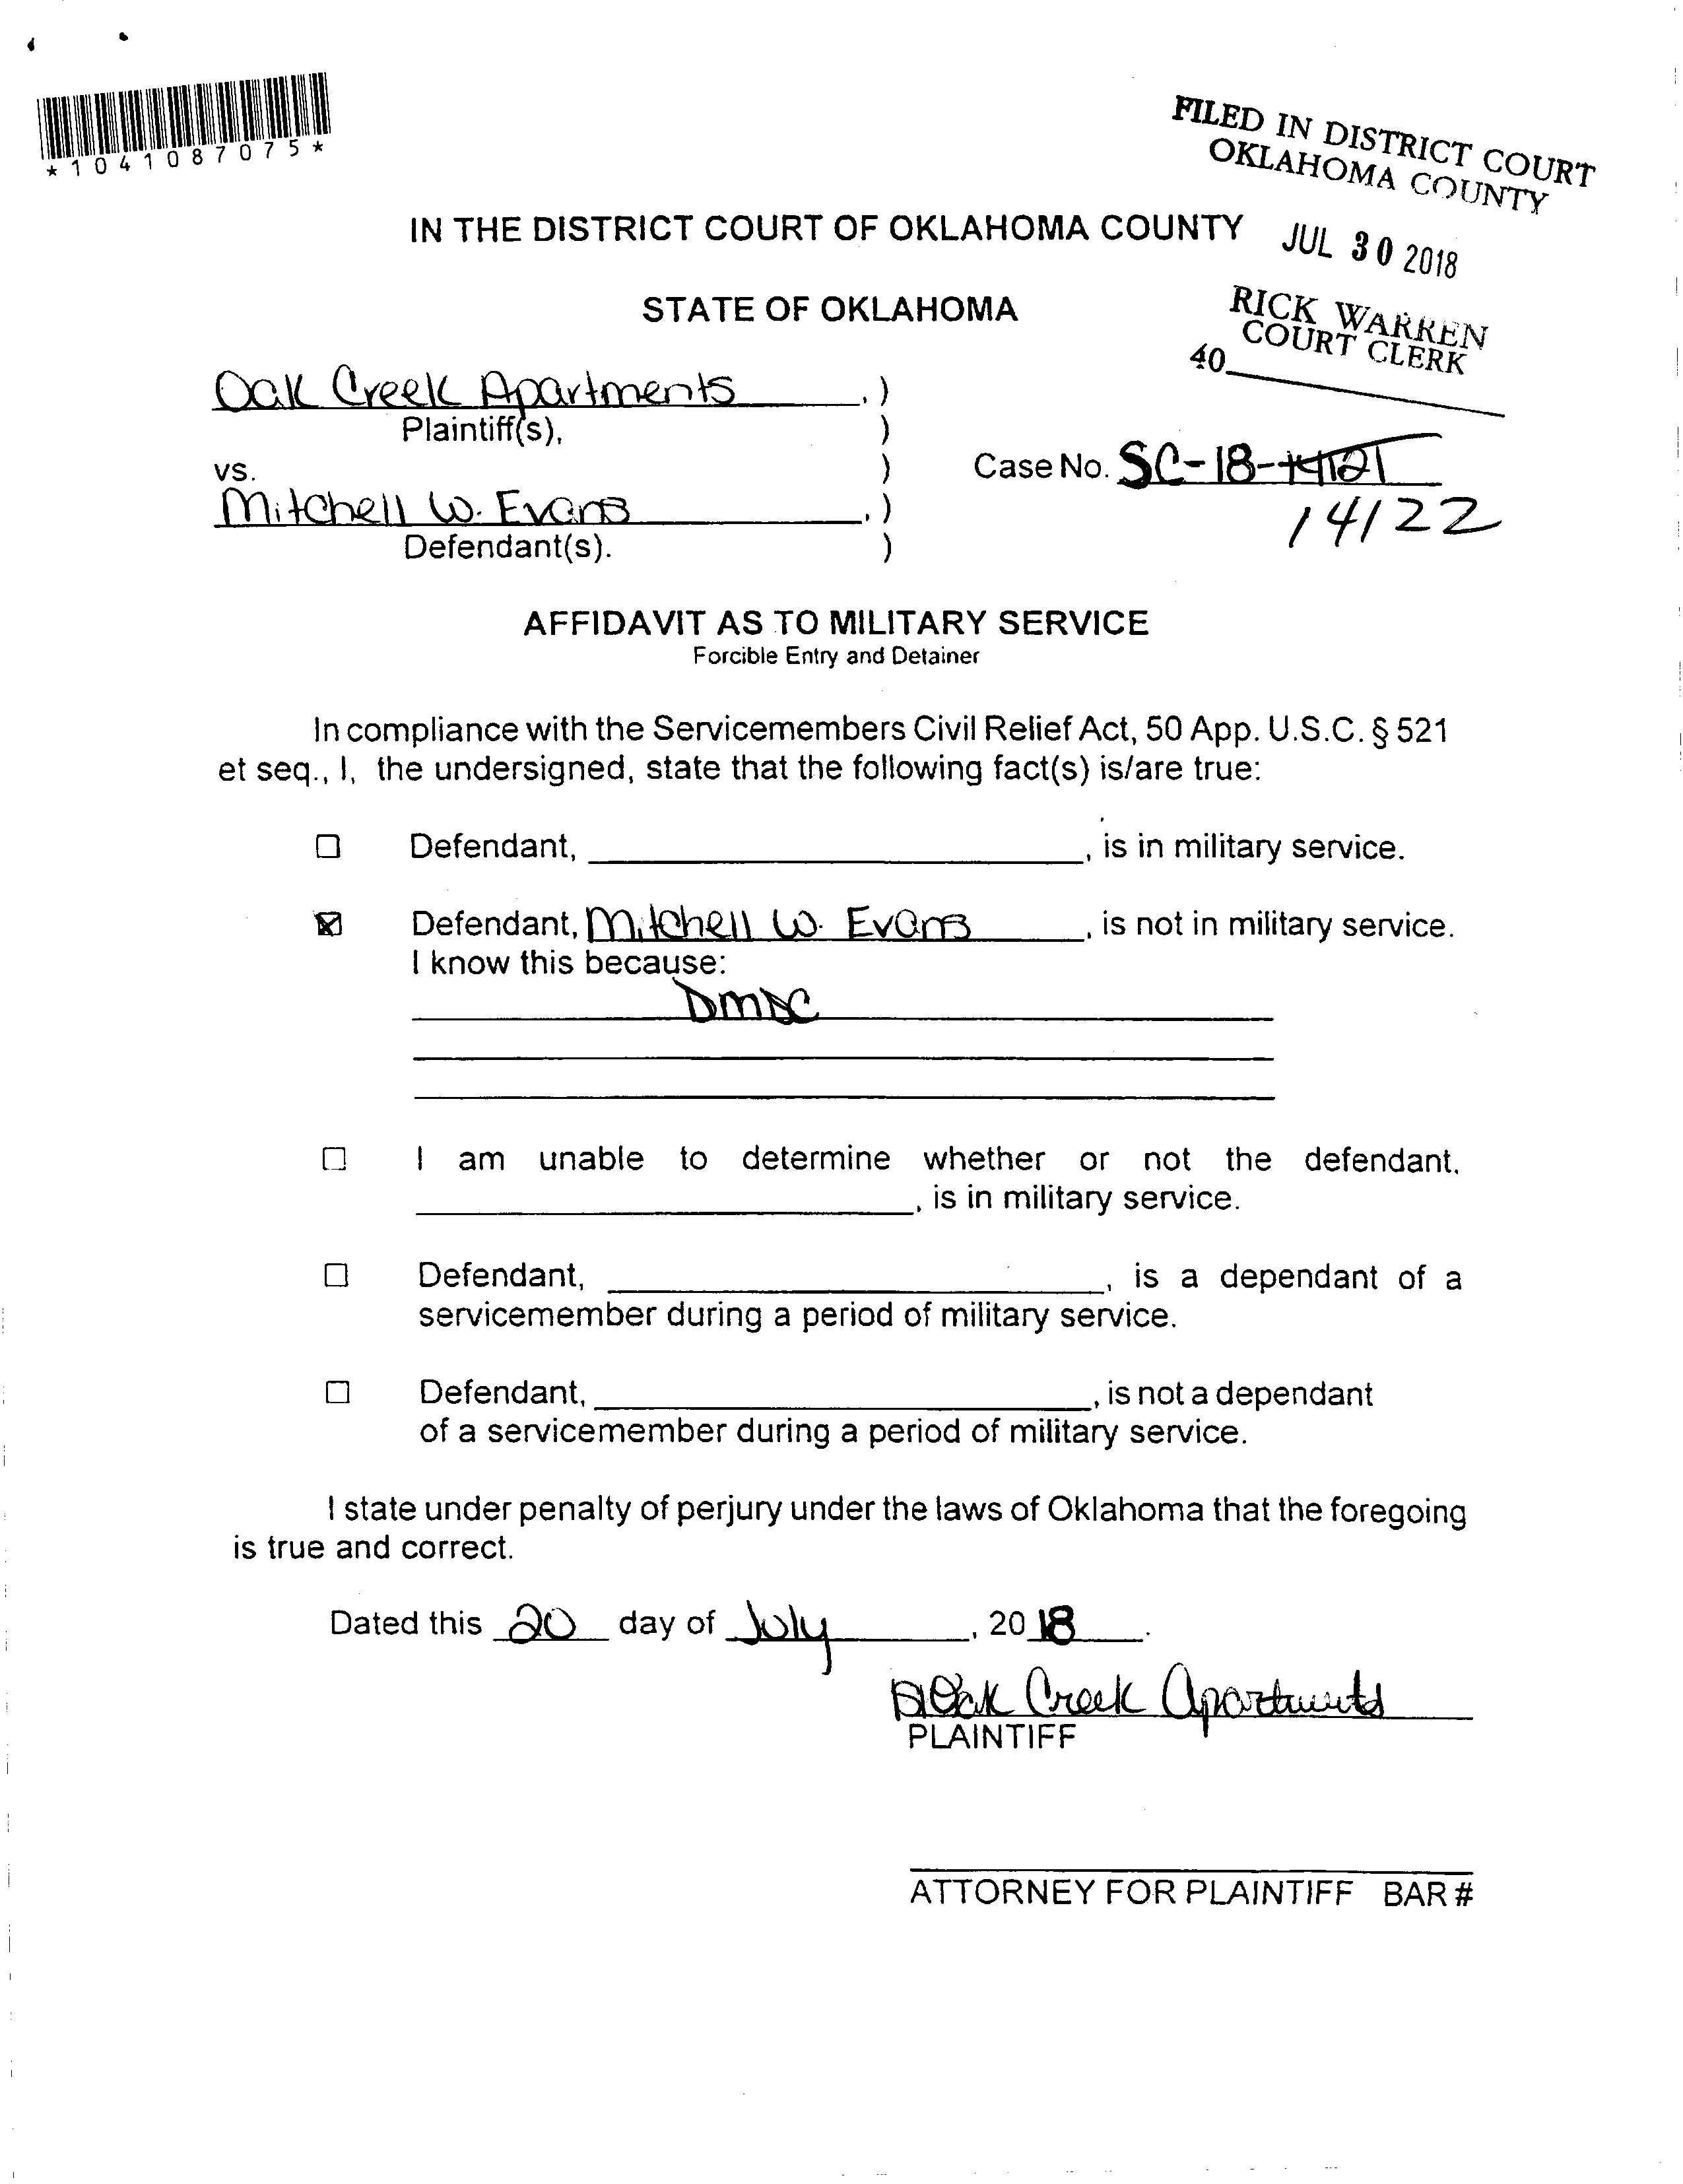 *1041087075*
FILED IN DISTRICT COURT
OKLAHOMA COUNTY
IN THE DISTRICT COURT OF OKLAHOMA COUNTY
JUL 30 2018
STATE OF OKLAHOMA
RICK WARREN
COURT CLERK
40
Oak Creek Apartments, )
Plaintiff(s), )
vs. )
Case No. SC-18-14121
14122
Mitchell W. Evans, )
Defendant(s). )
AFFIDAVIT AS TO MILITARY SERVICE
Forcible Entry and Detainer
In compliance with the Servicemembers Civil Relief Act, 50 App. U.S.C. § 521
et seq., I, the undersigned, state that the following fact(s) is/are true:
☐ Defendant, , is in military service.
☒ Defendant, Mitchell W. Evans, is not in military service.
I know this because:
DMDC
☐ I am unable to determine whether or not the defendant,
, is in military service.
☐ Defendant, , is a dependant of a
servicemember during a period of military service.
☐ Defendant, , is not a dependant
of a servicemember during a period of military service.
I state under penalty of perjury under the laws of Oklahoma that the foregoing
is true and correct.
Dated this 20 day of July, 2018.
Oak Creek Apartments
PLAINTIFF
ATTORNEY FOR PLAINTIFF BAR #